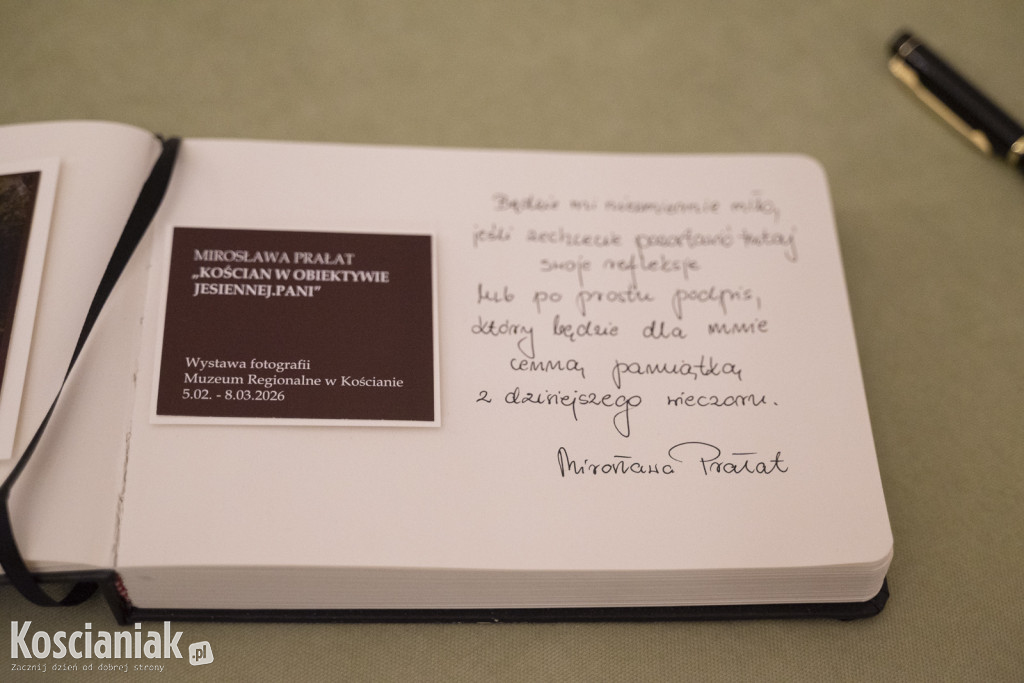 MIROSŁAWA PRAŁAT
„KOŚCIAN W OBIEKTYWIE
JESIENNEJ.PANI”
Wystawa fotografii
Muzeum Regionalne w Kościanie
5.02. - 8.03.2026
Będzie mi niezmiernie miło,
jeśli zechcecie pozostawić tutaj
swoje refleksje
lub po prostu podpis,
który będzie dla mnie
cenną pamiątką
z dzisiejszego wieczoru.
Mirosława Prałat
Koscianiak.pl
Zacznij dzień od dobrej strony